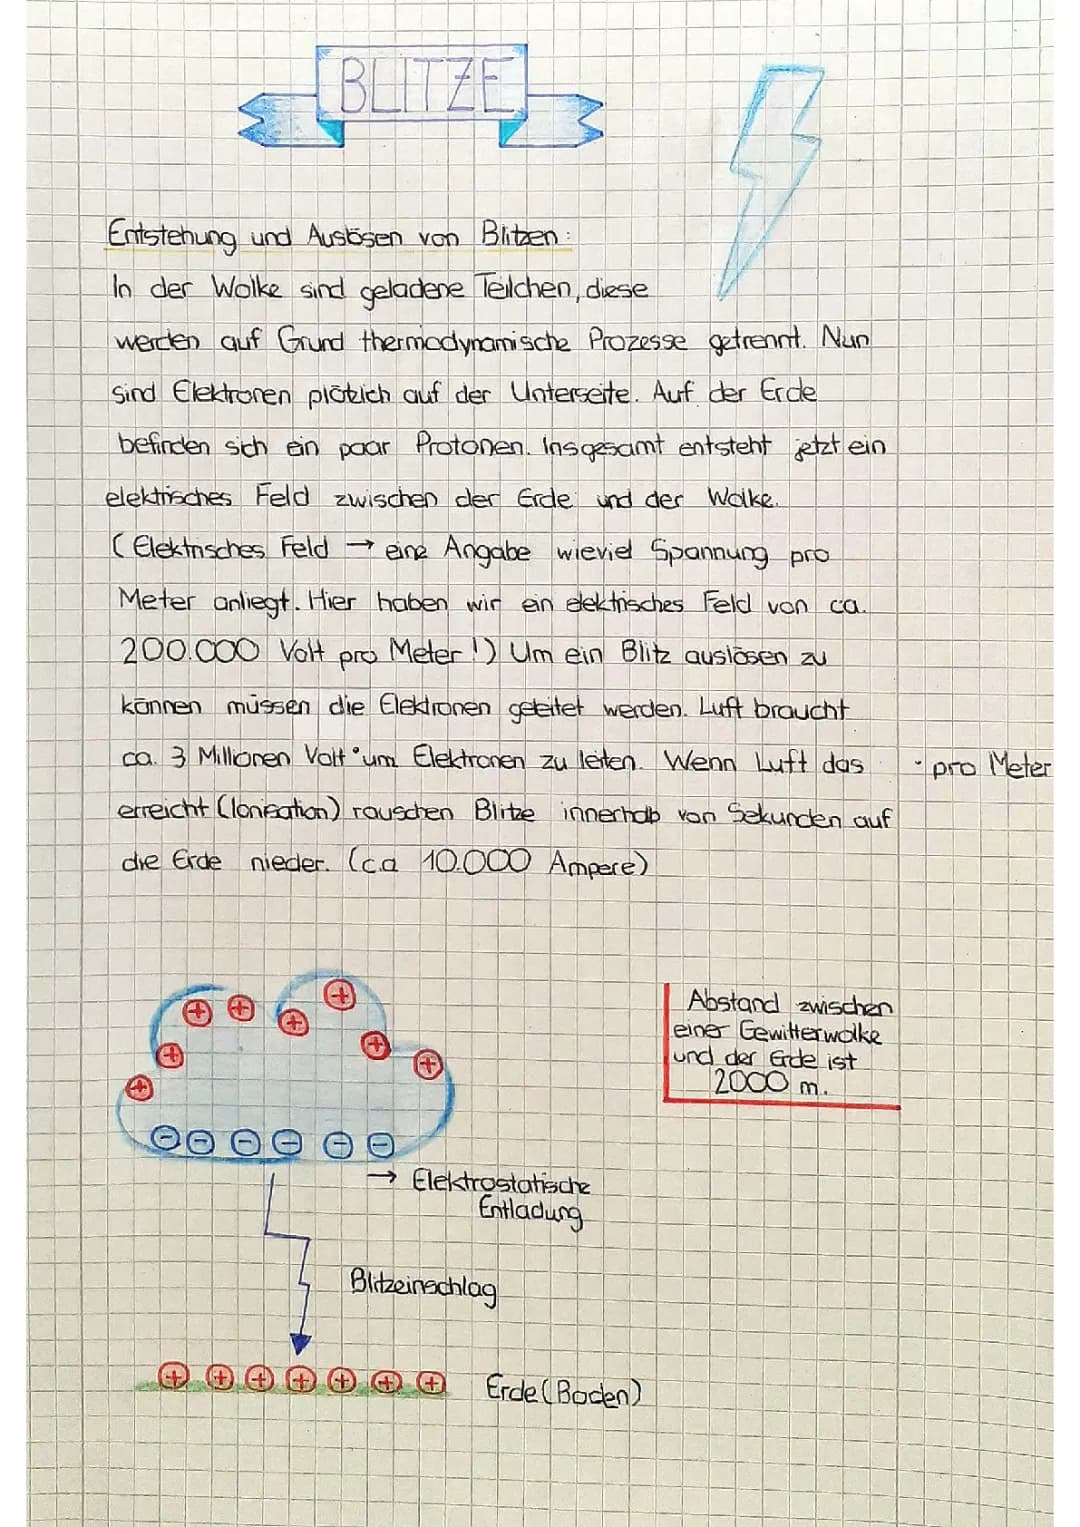 BLITZE
Entstehung und Auslösen von Blitzen:
In der Wolke sind geladene Teilchen, diese
werden auf Grund thermodynamische Prozesse getrennt. Nun
sind Elektronen plötzlich auf der Unterseite. Auf der Erde
befinden sich ein paar Protonen. Insgesamt entsteht jetzt ein
elektrisches Feld zwischen der Erde und der Wolke.
(Elektrisches Feld → eine Angabe wieviel Spannung pro
Meter anliegt. Hier haben wir ein elektrisches Feld von ca.
200.000 Volt pro Meter!) Um ein Blitz auslösen zu
können müssen die Elektronen geleitet werden. Luft braucht
ca. 3 Millionen Volt • um Elektronen zu leiten. Wenn Luft das
• pro Meter
erreicht (Ionisation) rauschen Blitze innerhalb von Sekunden auf
die Erde nieder. (c.a 10.000 Ampere)
Abstand zwischen
einer Gewitterwolke
und der Erde ist
2000 m.
→ Elektrostatische
Entladung
Blitzeinschlag
Erde (Boden)